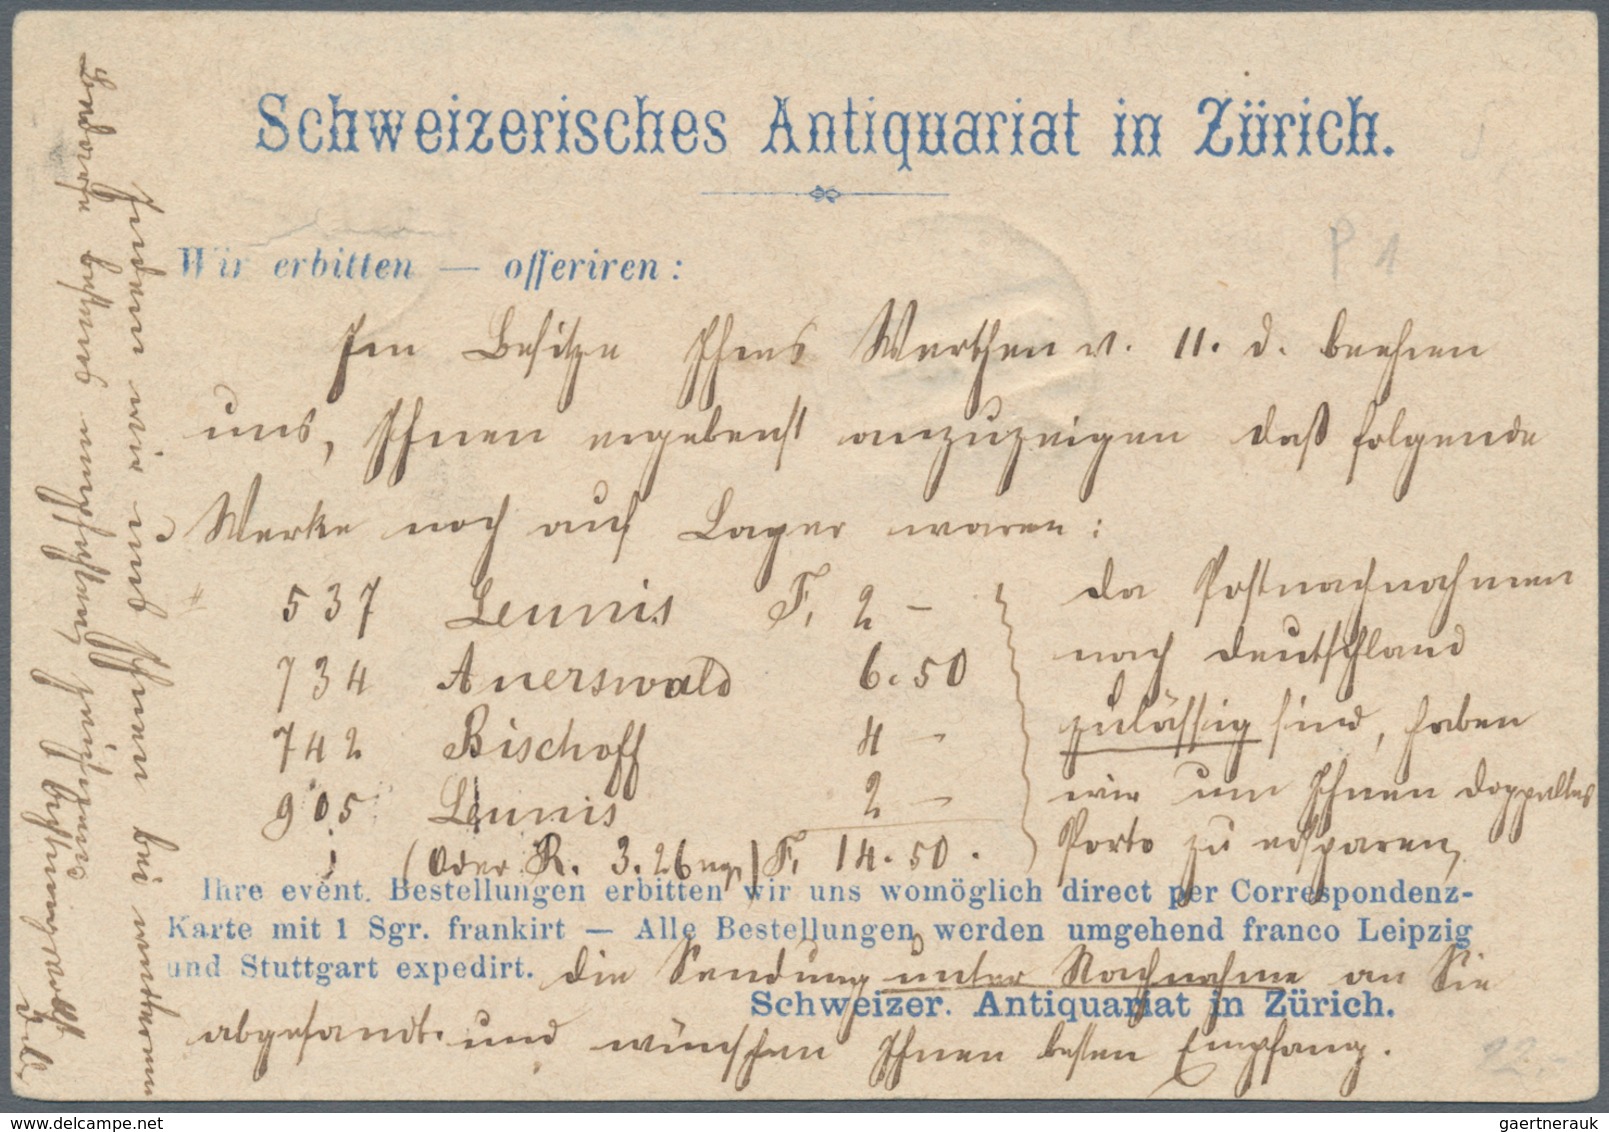 Schweizerisches Antiquariat in Zürich.
P 1
Wir erbitten — offeriren :
Im Besitze Ihres Werthen v. 11. d. beehren
uns, Ihnen ergebenst anzuzeigen daß folgende
Werke noch auf Lager waren :
537 Leunis F. 2 –
734 Auerswald 6.50
742 Bischoff 4 –
905 Leunis 2 –
(oder R. 3.26 ngr) F. 14.50.
da Postnachnahmen
nach Deutschland
zulässig sind, haben
wir um Ihnen doppeltes
Porto zu ersparen,
Ihre event. Bestellungen erbitten wir uns womöglich direct per Correspondenz-
Karte mit 1 Sgr. frankirt — Alle Bestellungen werden umgehend franco Leipzig
und Stuttgart expedirt.
die Sendung unter Nachnahme an Sie
Schweizer. Antiquariat in Zürich.
abgesandt und wünschen Ihnen besten Empfang.
Indem wir uns Ihnen bei weiterem
Bedarfe bestens empfohlen
22.-
gaertnerauk